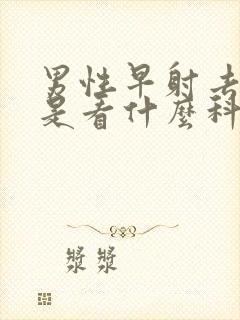 男性早射去
是看什麼科
漿漿